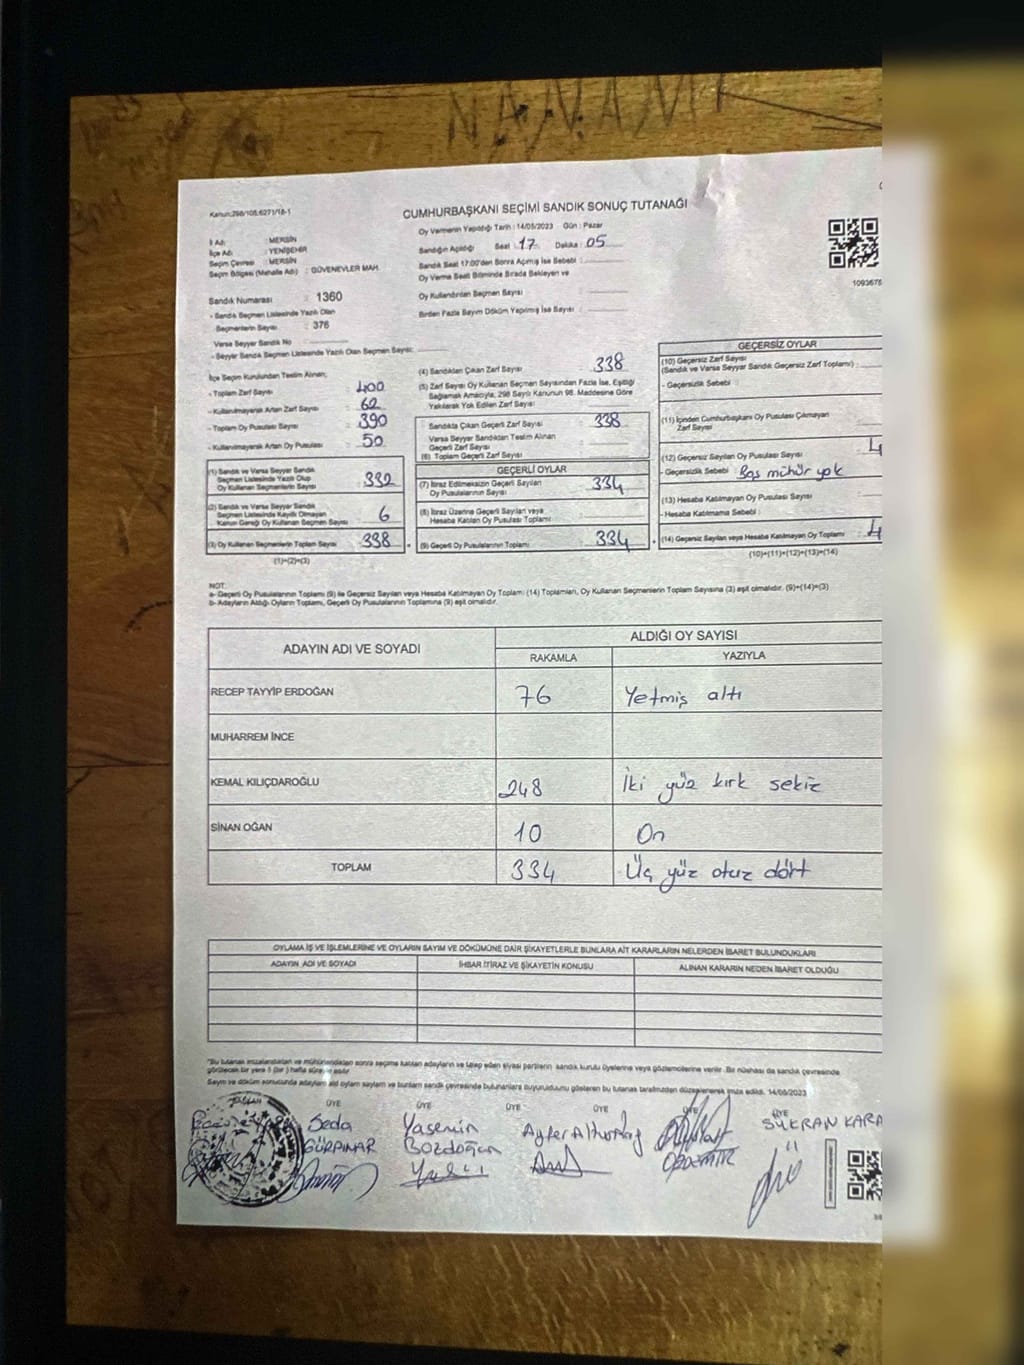 NANAMI
Kanun:298/105,6271/18-1
CUMHURBAŞKANI SEÇİMİ SANDIK SONUÇ TUTANAĞI
Oy Vermenin Yapıldığı Tarih : 14/05/2023 Gün : Pazar
İl Adı : MERSİN
İlçe Adı : YENİŞEHİR
Seçim Çevresi : MERSİN
Seçim Bölgesi (Mahalle Adı) : GÜVENEVLER MAH.
Sandığın Açıldığı Saat : 17 Dakika : 05
Sandık Saat 17:00'den Sonra Açılmış İse Sebebi :
Oy Verme Saat Bitiminde Sırada Bekleyen ve
Oy Kullandırılan Seçmen Sayısı :
Birden Fazla Sayım Döküm Yapılmış İse Sayısı :
1093675
Sandık Numarası : 1360
- Sandık Seçmen Listesinde Yazılı Olan
Seçmenlerin Sayısı : 376
Varsa Seyyar Sandık No :
- Seyyar Sandık Seçmen Listesinde Yazılı Olan Seçmen Sayısı:
İlçe Seçim Kurulundan Teslim Alınan;
- Toplam Zarf Sayısı : 400
- Kullanılmayarak Artan Zarf Sayısı : 62
- Toplam Oy Pusulası Sayısı : 390
- Kullanılmayarak Artan Oy Pusulası : 50
(1) Sandık ve Varsa Seyyar Sandık
Seçmen Listesinde Yazılı Olup
Oy Kullanan Seçmenlerin Sayısı : 332
(2) Sandık ve Varsa Seyyar Sandık
Seçmen Listesinde Kayıtlı Olmayan
Kanun Gereği Oy Kullanan Seçmen Sayısı : 6
(3) Oy Kullanan Seçmenlerin Toplam Sayısı : 338
(1)+(2)=(3)
(4) Sandıktan Çıkan Zarf Sayısı : 338
(5) Zarf Sayısı Oy Kullanan Seçmen Sayısından Fazla İse, Eşitliği
Sağlamak Amacıyla, 298 Sayılı Kanunun 98. Maddesine Göre
Yakılarak Yok Edilen Zarf Sayısı :
Sandıkta Çıkan Geçerli Zarf Sayısı : 338
Varsa Seyyar Sandıktan Teslim Alınan
Geçerli Zarf Sayısı :
(6) Toplam Geçerli Zarf Sayısı :
GEÇERLİ OYLAR
(7) İtiraz Edilmeksizin Geçerli Sayılan
Oy Pusulalarının Sayısı : 334
(8) İtiraz Üzerine Geçerli Sayılan veya
Hesaba Katılan Oy Pusulası Toplamı :
(9) Geçerli Oy Pusulalarının Toplamı : 334
GEÇERSİZ OYLAR
(10) Geçersiz Zarf Sayısı
(Sandık ve Varsa Seyyar Sandık Geçersiz Zarf Toplamı) :
- Geçersizlik Sebebi :
(11) İçinden Cumhurbaşkanı Oy Pusulası Çıkmayan
Zarf Sayısı
(12) Geçersiz Sayılan Oy Pusulası Sayısı : 4
- Geçersizlik Sebebi : Boş mühür yok
(13) Hesaba Katılmayan Oy Pusulası Sayısı :
- Hesaba Katılmama Sebebi :
(14) Geçersiz Sayılan veya Hesaba Katılmayan Oy Toplamı : 4
(10)+(11)+(12)+(13)=(14)
NOT:
a- Geçerli Oy Pusulalarının Toplamı (9) ile Geçersiz Sayılan veya Hesaba Katılmayan Oy Toplamı (14) Toplamları, Oy Kullanan Seçmenlerin Toplam Sayısına (3) eşit olmalıdır. (9)+(14)=(3)
b- Adayların Aldığı Oyların Toplamı, Geçerli Oy Pusulalarının Toplamına (9) eşit olmalıdır.
ADAYIN ADI VE SOYADI
ALDIĞI OY SAYISI
RAKAMLA YAZIYLA
RECEP TAYYİP ERDOĞAN 76 Yetmiş altı
MUHARREM İNCE
KEMAL KILIÇDAROĞLU 248 İki yüz kırk sekiz
SİNAN OĞAN 10 On
TOPLAM 334 Üç yüz otuz dört
OYLAMA İŞ VE İŞLEMLERİNE VE OYLARIN SAYIM VE DÖKÜMÜNE DAİR ŞİKAYETLERLE BUNLARA AİT KARARLARIN NELERDEN İBARET BULUNDUKLARI
ADAYIN ADI VE SOYADI İHBAR İTİRAZ VE ŞİKAYETİN KONUSU ALINAN KARARIN NEDEN İBARET OLDUĞU
"Bu tutanak imzalandıktan ve mühürlendikten sonra seçime katılan adayların ve talep eden siyasi partilerin sandık kurulu üyelerine veya gözlemcilerine verilir. Bir nüshası da sandık çevresinde
görülecek bir yere 1 (bir) hafta süreyle asılır.
Sayım ve döküm sonucunda adayların aldığı oyların sayısını ve bunların sandık çevresinde bulunanlara duyurulduğunu gösteren bu tutanak tarafımızdan düzenlenerek imza edildi. 14/05/2023
BAŞKAN ÜYE ÜYE ÜYE ÜYE ÜYE ÜYE
Seda Yasemin Ayfer Altunbaş ŞÜKRAN KARA
GÜRPINAR Bozdoğan ÖZDEMİR